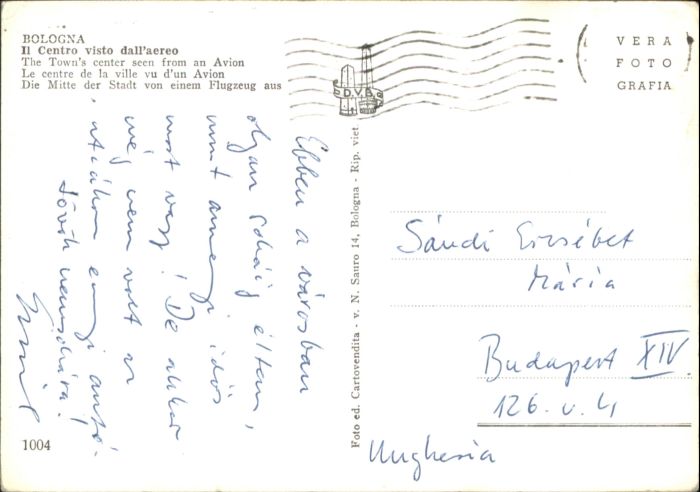 BOLOGNA
Il Centro visto dall'aereo
The Town's center seen from an Avion
Le centre de la ville vu d'un Avion
Die Mitte der Stadt von einem Flugzeug aus
D.V.B.
VERA
FOTO
GRAFIA
Ebben a városban
olyan sokáig éltem,
mint amennyi idős
most vagy! De akkor
még nem volt az
utcákon ennyi autó.
1004
Foto ed. Cartovendita - v. N. Sauro 14, Bologna - Rip. viet.
Sándi Erzsébet
Mária
Budapest XIV.
126. u. 4
Ungheria